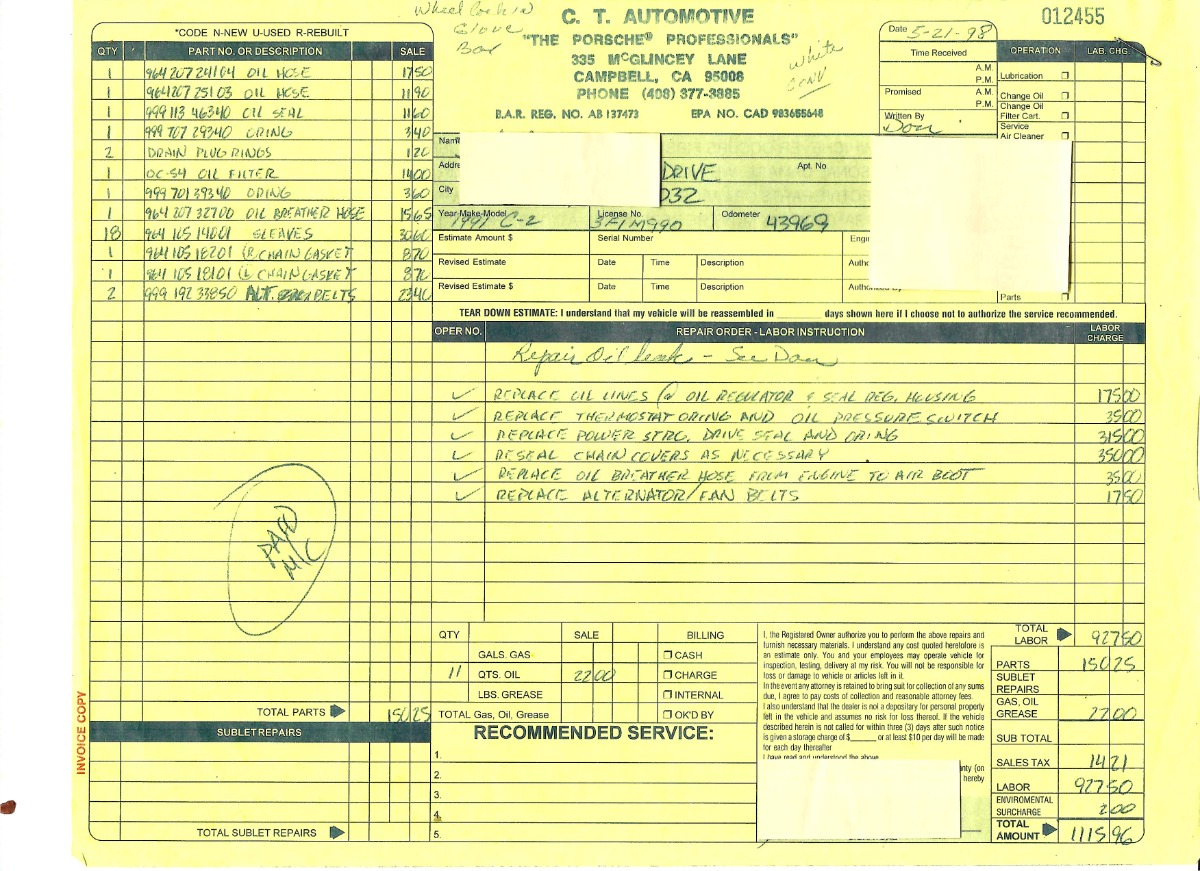 Wheel Lock in
Glove
Box
C. T. AUTOMOTIVE
"THE PORSCHE® PROFESSIONALS"
335 McGLINCEY LANE
CAMPBELL, CA 95008
PHONE (408) 377-3885
B.A.R. REG. NO. AB 137473 EPA NO. CAD 983655648
white
conv
012455
Date 5-21-98
Time Received
A.M.
P.M.
Promised A.M.
P.M.
Written By
Don
OPERATION LAB. CHG.
Lubrication
Change Oil
Change Oil
Filter Cart.
Service
Air Cleaner
Parts
*CODE N-NEW U-USED R-REBUILT
QTY PART NO. OR DESCRIPTION SALE
1 964 207 241 04 OIL HOSE 17 50
1 964 207 251 03 OIL HOSE 11 90
1 999 113 463 40 OIL SEAL 11 60
1 999 707 293 40 ORING 3 40
2 DRAIN PLUG RINGS 1 20
1 OC-54 OIL FILTER 14 00
1 999 701 393 40 ORING 3 60
1 964 207 327 00 OIL BREATHER HOSE 15 65
18 964 105 140 01 SLEAVES 30 60
1 964 105 182 01 (R CHAIN GASKET 8 70
1 964 105 181 01 (L CHAIN GASKET 8 70
2 999 192 338 50 ALT. BELTS 23 40
Name
DRIVE Apt. No
City 032
Year-Make-Model 1991 C-2 License No. 3FIM990 Odometer 43969
Estimate Amount $ Serial Number
Revised Estimate Date Time Description
Revised Estimate $ Date Time Description
TEAR DOWN ESTIMATE: I understand that my vehicle will be reassembled in ________ days shown here if I choose not to authorize the service recommended.
OPER NO. REPAIR ORDER - LABOR INSTRUCTION LABOR CHARGE
Repair Oil leak - See Don
✓ REPLACE OIL LINES @ OIL REGULATOR & SEAL REG. HOUSING 175 00
✓ REPLACE THERMOSTAT ORING AND OIL PRESSURE SWITCH 35 00
✓ REPLACE POWER STRG. DRIVE SEAL AND ORING 315 00
✓ RESEAL CHAIN COVERS AS NECESSARY 350 00
✓ REPLACE OIL BREATHER HOSE FROM ENGINE TO AIR BOOT 35 00
✓ REPLACE ALTERNATOR/FAN BELTS 17 50
PAID
M/C
INVOICE COPY
TOTAL PARTS 150 25
SUBLET REPAIRS
TOTAL SUBLET REPAIRS
QTY SALE BILLING
GALS. GAS CASH
11 QTS. OIL 22 00 CHARGE
LBS. GREASE INTERNAL
TOTAL Gas, Oil, Grease OK'D BY
RECOMMENDED SERVICE:
1.
2.
3.
4.
5.
I, the Registered Owner authorize you to perform the above repairs and
furnish necessary materials. I understand any cost quoted heretofore is
an estimate only. You and your employees may operate vehicle for
inspection, testing, delivery at my risk. You will not be responsible for
loss or damage to vehicle or articles left in it.
In the event any attorney is retained to bring suit for collection of any sums
due, I agree to pay costs of collection and reasonable attorney fees.
I also understand that the dealer is not a depositary for personal property
left in the vehicle and assumes no risk for loss thereof. If the vehicle
described herein is not called for within three (3) days after such notice
is given a storage charge of $______ or at least $10 per day will be made
for each day thereafter
I have read and understood the above
hereby
TOTAL LABOR 927 50
PARTS 150 25
SUBLET REPAIRS
GAS, OIL GREASE 22 00
SUB TOTAL
SALES TAX 14 21
LABOR 927 50
ENVIROMENTAL SURCHARGE 2 00
TOTAL AMOUNT 1115 96